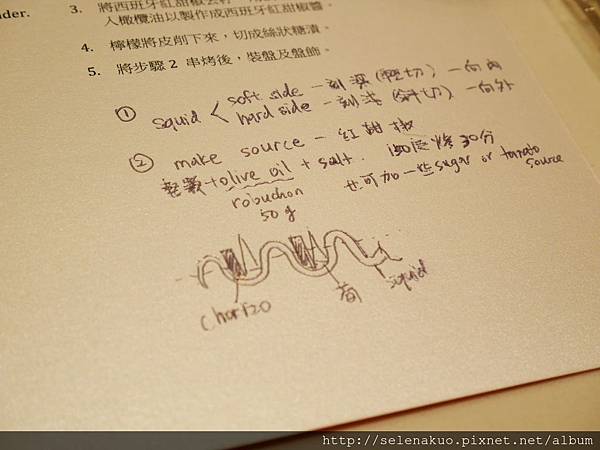 nder.
3. 將西班牙紅甜椒去籽
入橄欖油以製作成西班牙紅甜椒醬。
4. 檸檬將皮削下來，切成絲狀糖漬。
5. 將步驟 2 串烤後，裝盤及盤飾。
① squid < soft side – 刻深 (輕切) – 向內
hard side – 刻淺 (斜切) – 向外
② make source – 紅甜椒
+ olive oil + salt. 150度烤30分
robuchon 也可加一些sugar or tomato source
50 g
chorizo
筍
squid
http://selenakuo.pixnet.net/album